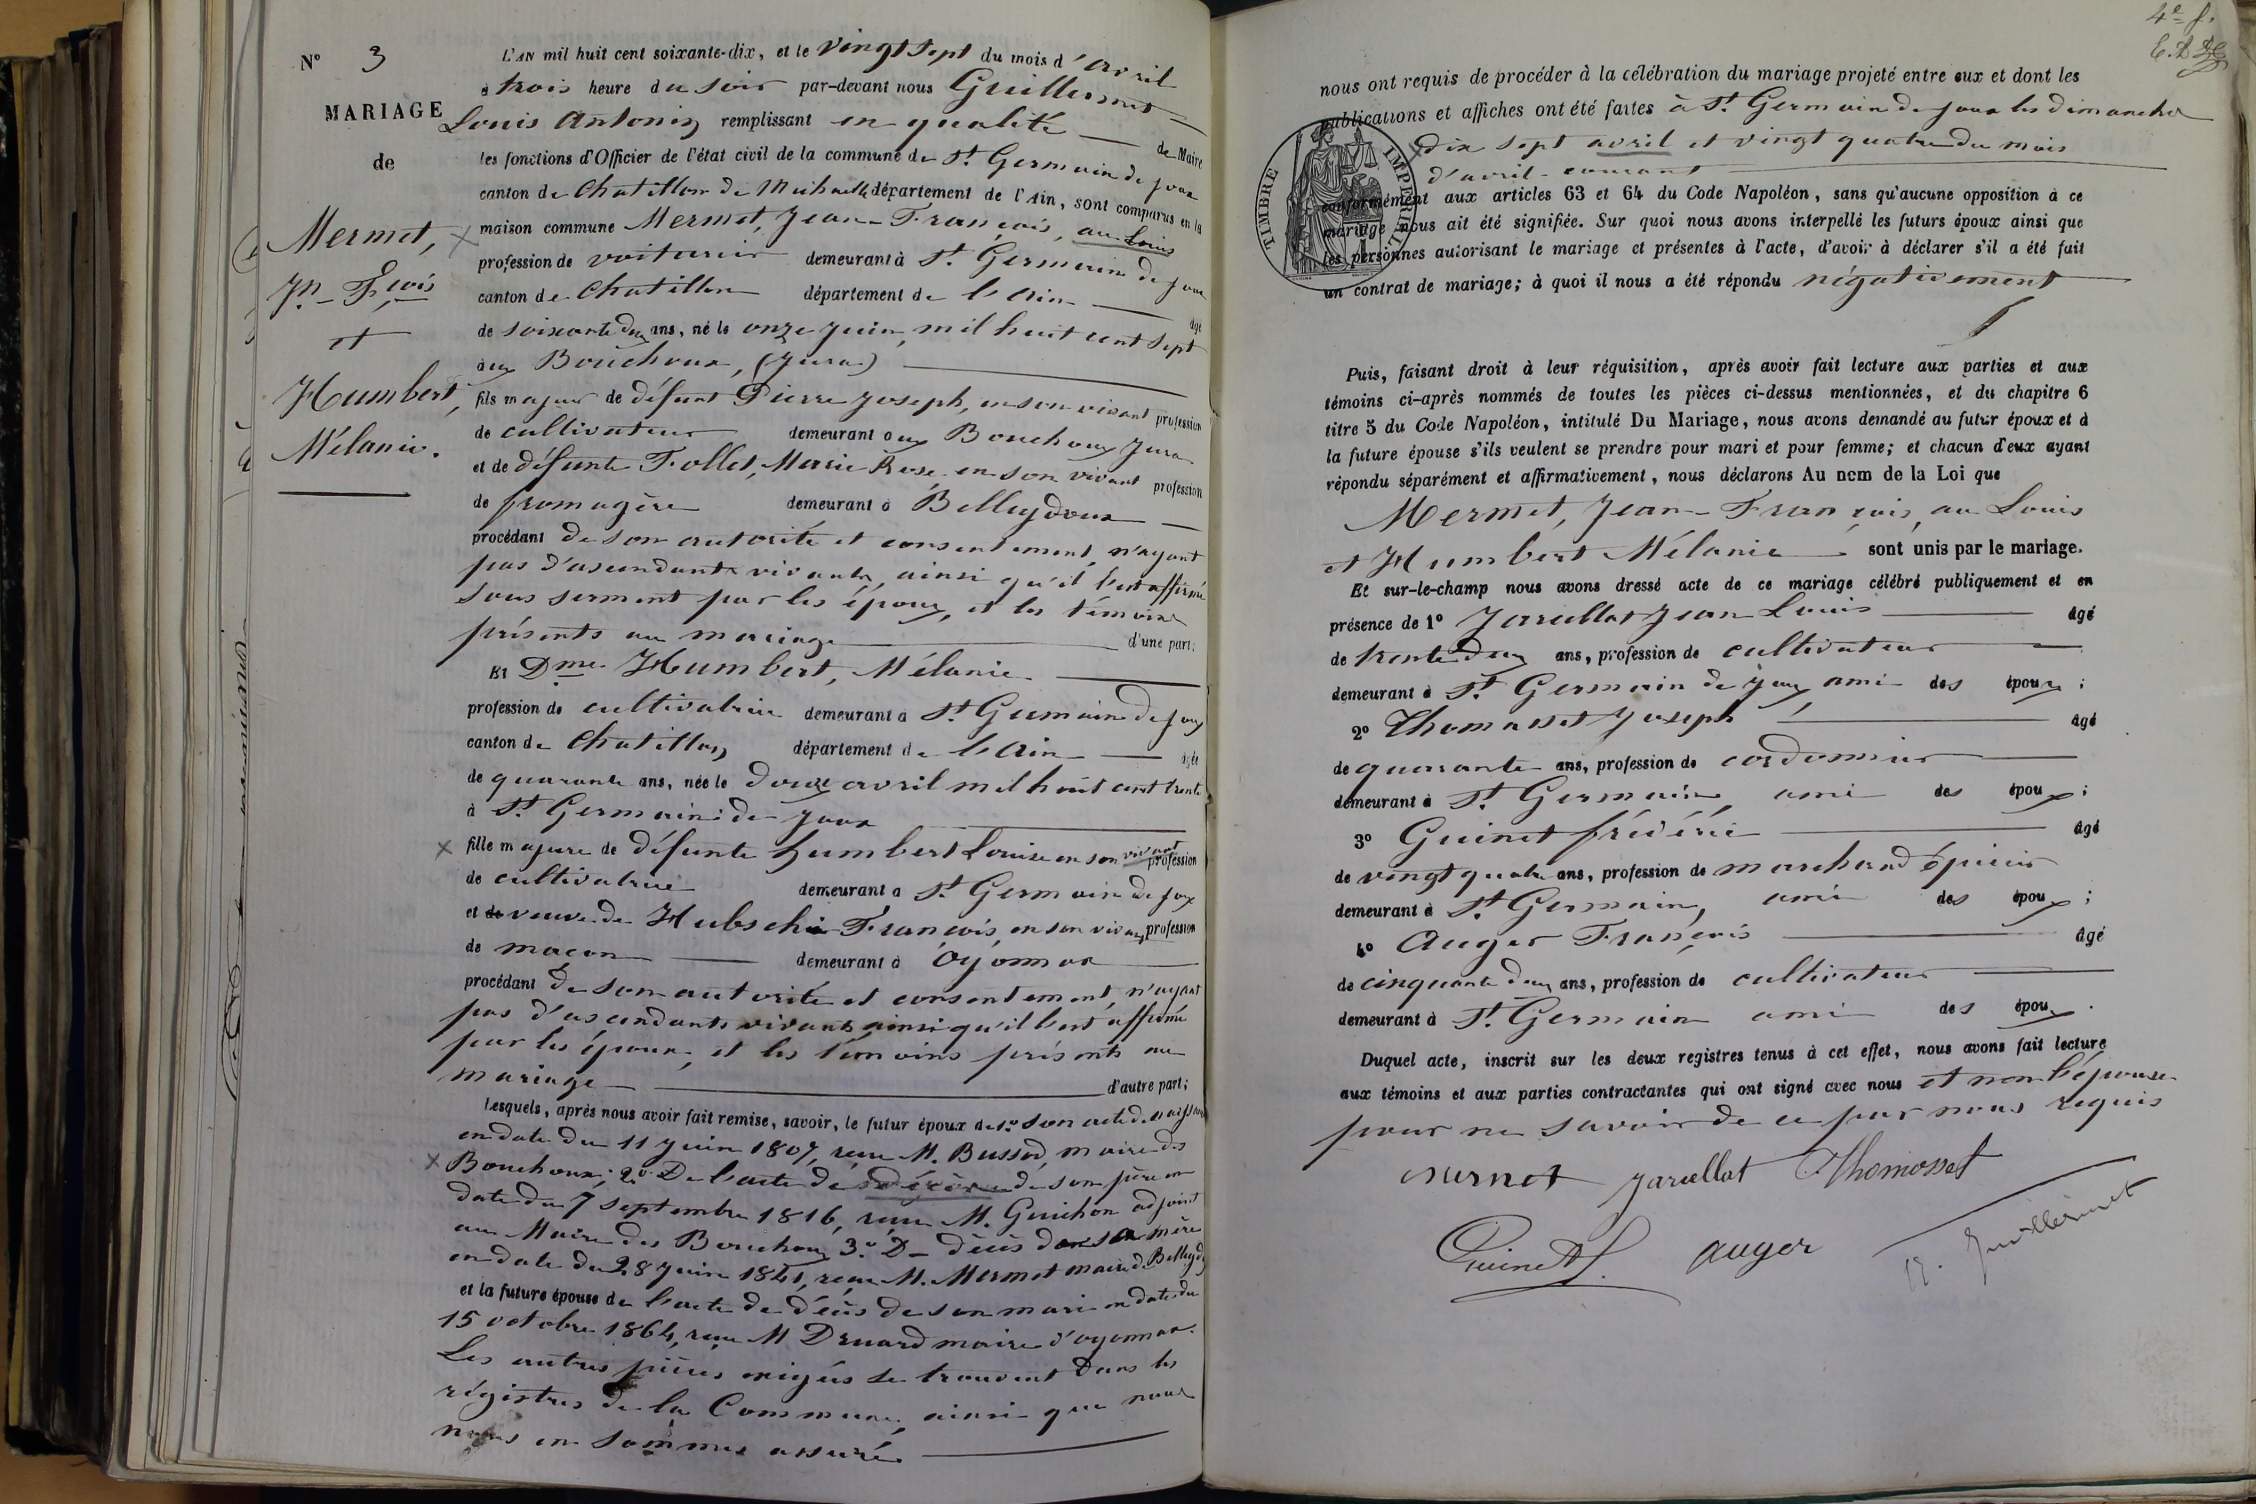 N° 3
MARIAGE
de
Mermet,
Jn - Fçois
et
Humbert,
Mélanie.
L'AN mil huit cent soixante-dix, et le vingt sept du mois d'avril
à trois heure du soir par-devant nous Guillermet
Louis Antonin remplissant en qualité de Maire
les fonctions d'Officier de l'état civil de la commune de St Germain de Joux
canton de Chatillon de Michaille département de l'Ain, sont comparus en la
maison commune Mermet, Jean-François, au Louis
profession de voiturier demeurant à St Germain de Joux
canton de Chatillon département de l'Ain âgé
de soixante deux ans, né le onze juin mil huit cent sept
aux Bouchoux, (Jura)
fils majeur de défunt Pierre Joseph, en son vivant profession
de cultivateur demeurant aux Bouchoux Jura
et de défunte Follet, Marie Rose en son vivant profession
de fromagère demeurant à Belleydoux
procédant de son autorité et consentement, n'ayant
pas d'ascendants vivants, ainsi qu'il l'est affirmé
sous serment par les époux, et les témoins
présents au mariage d'une part;
Et Dme Humbert, Mélanie
profession de cultivatrice demeurant à St Germain de Joux
canton de Chatillon département de l'Ain âgée
de quarante ans, née le douze avril mil huit cent trente
à St Germain de Joux
fille majeure de défunte humbert Louise en son vivant profession
de cultivatrice demeurant à St Germain de Joux
et de veuve de Hubschi François, en son vivant profession
de maçon demeurant à Oyonnax
procédant de son autorité et consentement, n'ayant
pas d'ascendants vivants ainsi qu'il l'est affirmé
par les époux, et les témoins présents au
mariage d'autre part;
Lesquels, après nous avoir fait remise, savoir, le futur époux de 1° son acte de naissance
en date du 11 juin 1807, reçu M. Bussod, maire des
Bouchoux; 2° De l'acte de décès de son père en
date du 7 septembre 1816, reçu M. Guichon adjoint
au Maire des Bouchoux 3° D- décès de sa mère
en date du 28 juin 1841, reçu M. Mermet maire de Belleydoux
et la future épouse de l'acte de décès de son mari en date du
15 octobre 1864, reçu M Druard maire d'oyonnax.
Les autres pièces exigées se trouvent dans les
régistres de la Commune, ainsi que nous
nous en sommes assuré.
4e f.
nous ont requis de procéder à la célébration du mariage projeté entre eux et dont les
publications et affiches ont été faites à St Germain de Joux les dimanches
dix sept avril et vingt quatre du mois
d'avril courant
conformément aux articles 63 et 64 du Code Napoléon, sans qu'aucune opposition à ce
mariage nous ait été signifiée. Sur quoi nous avons interpellé les futurs époux ainsi que
les personnes autorisant le mariage et présentes à l'acte, d'avoir à déclarer s'il a été fait
un contrat de mariage; à quoi il nous a été répondu négativement
TIMBRE IMPERIAL
Puis, faisant droit à leur réquisition, après avoir fait lecture aux parties et aux
témoins ci-après nommés de toutes les pièces ci-dessus mentionnées, et du chapitre 6
titre 5 du Code Napoléon, intitulé Du Mariage, nous avons demandé au futur époux et à
la future épouse s'ils veulent se prendre pour mari et pour femme; et chacun d'eux ayant
répondu séparément et affirmativement, nous déclarons Au nom de la Loi que
Mermet, Jean-François, au Louis
et Humbert Mélanie sont unis par le mariage.
Et sur-le-champ nous avons dressé acte de ce mariage célébré publiquement et en
présence de 1° Jarcellat Jean Louis âgé
de trente deux ans, profession de cultivateur
demeurant à St Germain de Joux, ami des époux;
2° Thomasset Joseph âgé
de quarante ans, profession de cordonnier
demeurant à St Germain, ami des époux;
3° Guinet frédéric âgé
de vingt quatre ans, profession de marchand épicier
demeurant à St Germain, ami des époux;
4° Auger François âgé
de cinquante deux ans, profession de cultivateur
demeurant à St Germain ami des époux.
Duquel acte, inscrit sur les deux registres tenus à cet effet, nous avons fait lecture
aux témoins et aux parties contractantes qui ont signé avec nous et non l'épouse
pour ne savoir de ce par nous requis
mermet jarcellat Thomasset
Guinet f. auger Guillermet